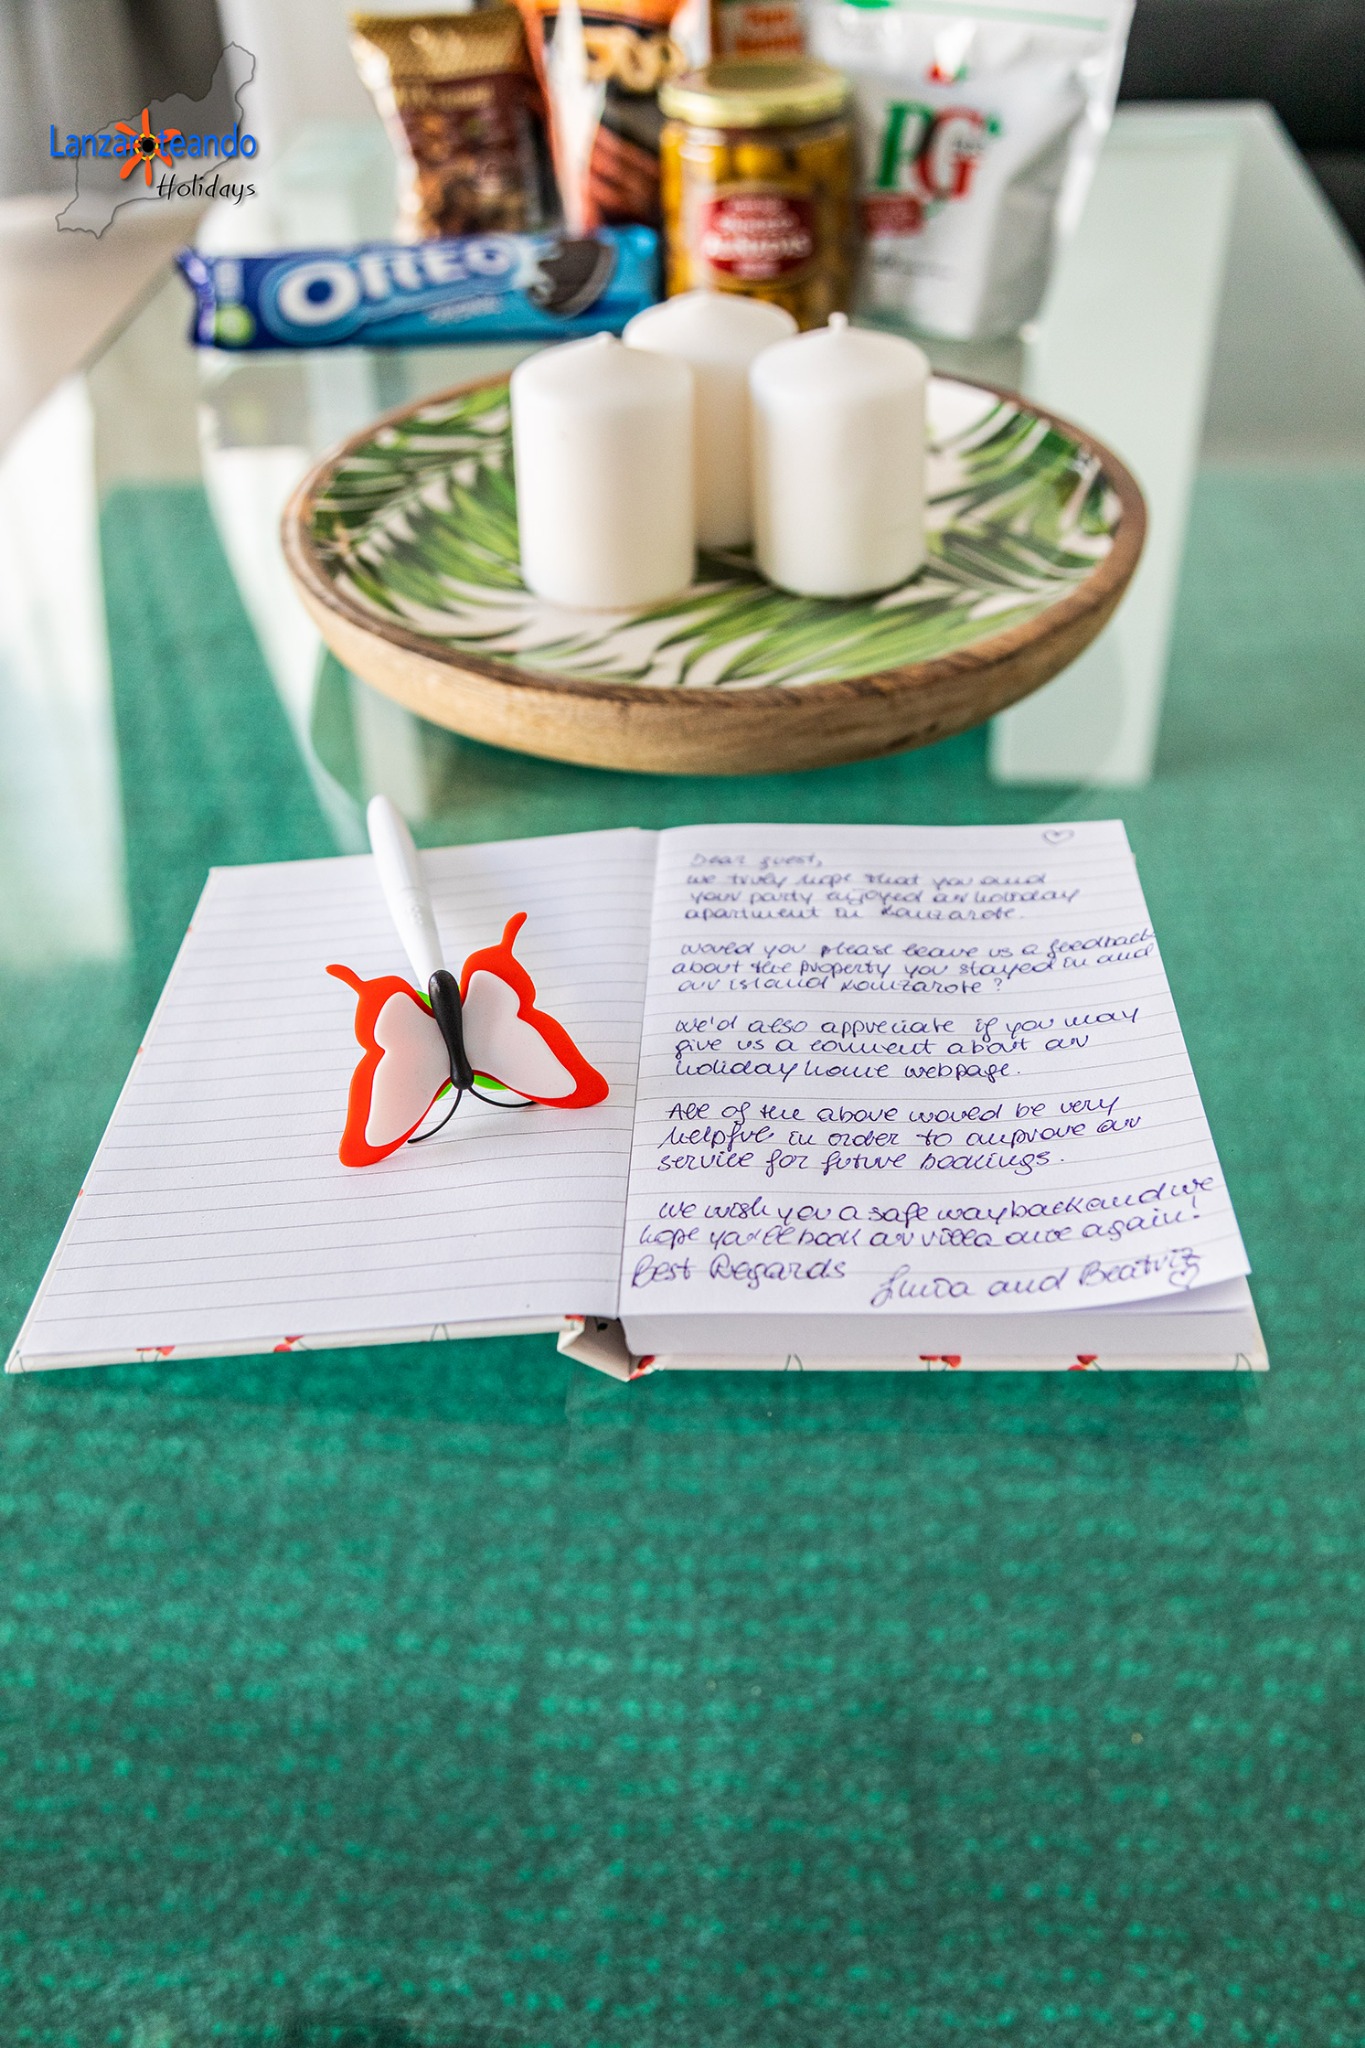 Lanzaroteando
Holidays
OREO
PG
Dear guest,
we truly hope that you and
your party enjoyed our holiday
apartment in Lanzarote.
Would you please leave us a feedback
about the property you stayed in and
our island Lanzarote?
We'd also appreciate if you may
give us a comment about our
holiday home webpage.
All of the above would be very
helpful in order to improve our
service for future bookings.
We wish you a safe way back and we
hope you'll book our villa once again!
Best Regards
and Beatriz